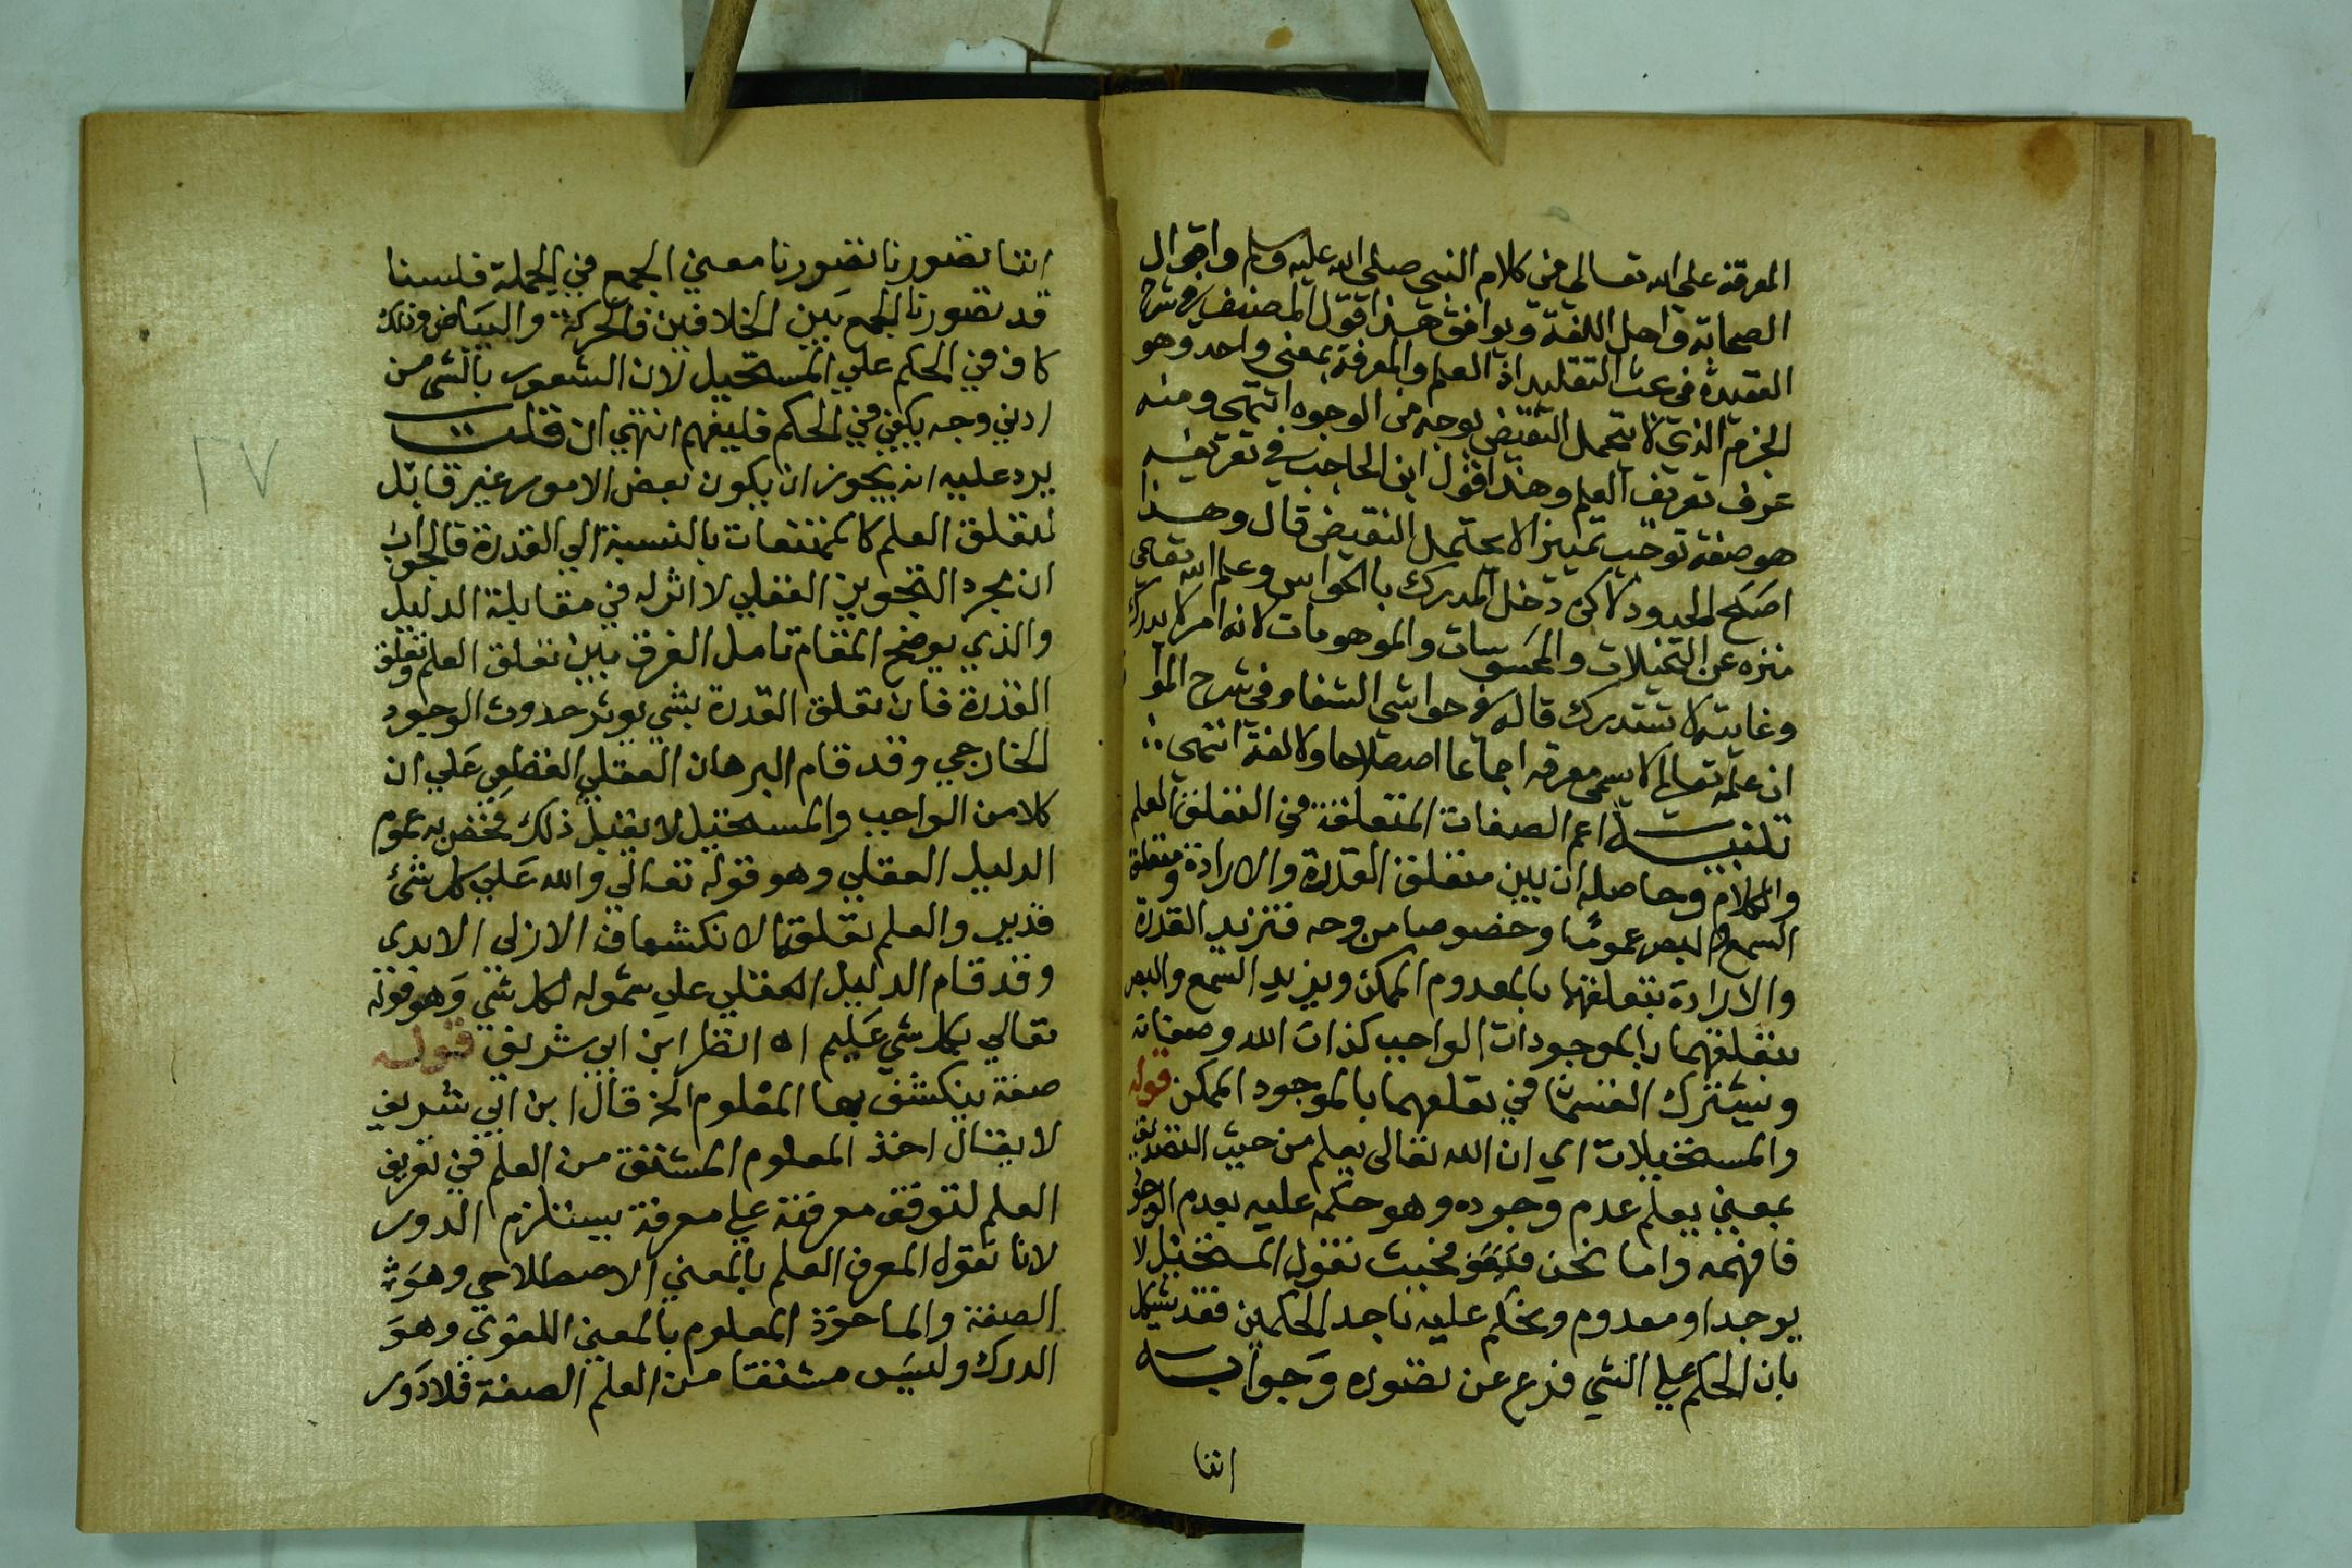 المعرفة على الله تعالى من كلام النبى صلى الله عليه وسلم واقوال
الصحابة واهل اللغة ويوافق هذا قول المصنف فى شرح
العقيدة فى بحث التقليد اذ العلم والمعرفة بمعنى واحد وهو
الجزم الذى لا يحتمل النقيض بوجه من الوجوه انتهى ومنه
عرف تعريف العلم وهذا قول ابن الحاجب فى تعريفه
هو صفة توجب تمييزا لا يحتمل النقيض قال وهذا
اصح الحدود لكن دخل المدرك بالحواس وعلم الله تعالى
منزه عن التخيلات والمحسوسات والموهومات لانه امر لا يدرك
وغايته لا تستدرك قاله فى حواشى الشفا وفى شرح الموا
ان علمه تعالى لا يسمى معرفه اجماعا اصطلاحا ولا لغة انتهى
تنبيه اعم الصفات المتعلقة فى التعلق العلم
والكلام وحاصله ان بين متعلق القدرة والارادة ومتعلق
السمع والبصر عموما وخصوصا من وجه فتزيد القدرة
والارادة بتعلقها بالمعدوم الممكن ويزيد السمع والبصر
بتعلقهما بالموجودات الواجب كذات الله وصفاته
ويشترك القسمان في تعلقهما بالموجود الممكن قوله
والمستحيلات اي ان الله تعالى يعلم من حيث التصديق
بمعني يعلم عدم وجوده وهو حكمه عليه بعدم الوجود
فافهمه واما نحن فبحيث نقول المستحيل لا
يوجد او معدوم ويحكم عليه باحد الحكمين فقد يشكل
بان الحكم علي الشي فرع عن تصوره وجوابه
اننا
اننا تصورنا تصورنا معني الجمع في الجملة فلسنا
قد تصورنا الجمع بين الخلافين فالحركة والبياض وذلك
كاف في الحكم علي المستحيل لان الشعور بالشي من
ادني وجه يكفي في الحكم فليفهم انتهي ان قلت
يرد عليه انه يجوز ان يكون بعض الامور غير قابل
لتعلق العلم كالممتنعات بالنسبة الي القدرة فالجواب
ان مجرد التجويز العقلي لا اثر له في مقابلة الدليل
والذي يوضح المقام تامل الفرق بين تعلق العلم وتعلق
القدرة فان تعلق القدرة بشي يوثر حدوث الوجود
الخارجي وقد قام البرهان العقلي القطعي علي ان
كلا من الواجب والمستحيل لا يقبل ذلك فخص به عموم
الدليل العقلي وهو قوله تعالي والله علي كل شئ
قدير والعلم تعلقه الانكشاف الازلى الابدى
وقد قام الدليل العقلي علي شموله لكل شي وهو قوله
تعالي بكل شي عليم اه انظر ابن ابي شريف قوله
صفة ينكشف بها المعلوم الخ قال ابن ابي شريف
لا يقال اخذ المعلوم المشتق من العلم في تعريف
العلم لتوقف معرفته علي معرفة يستلزم الدور
لانا نقول المعرف العلم بالمعني الاصطلاحي وهو
الصفة والماخوذ المعلوم بالمعني اللغوي وهو
الدرك وليس مشتقا من العلم الصفة فلا دور
١٧